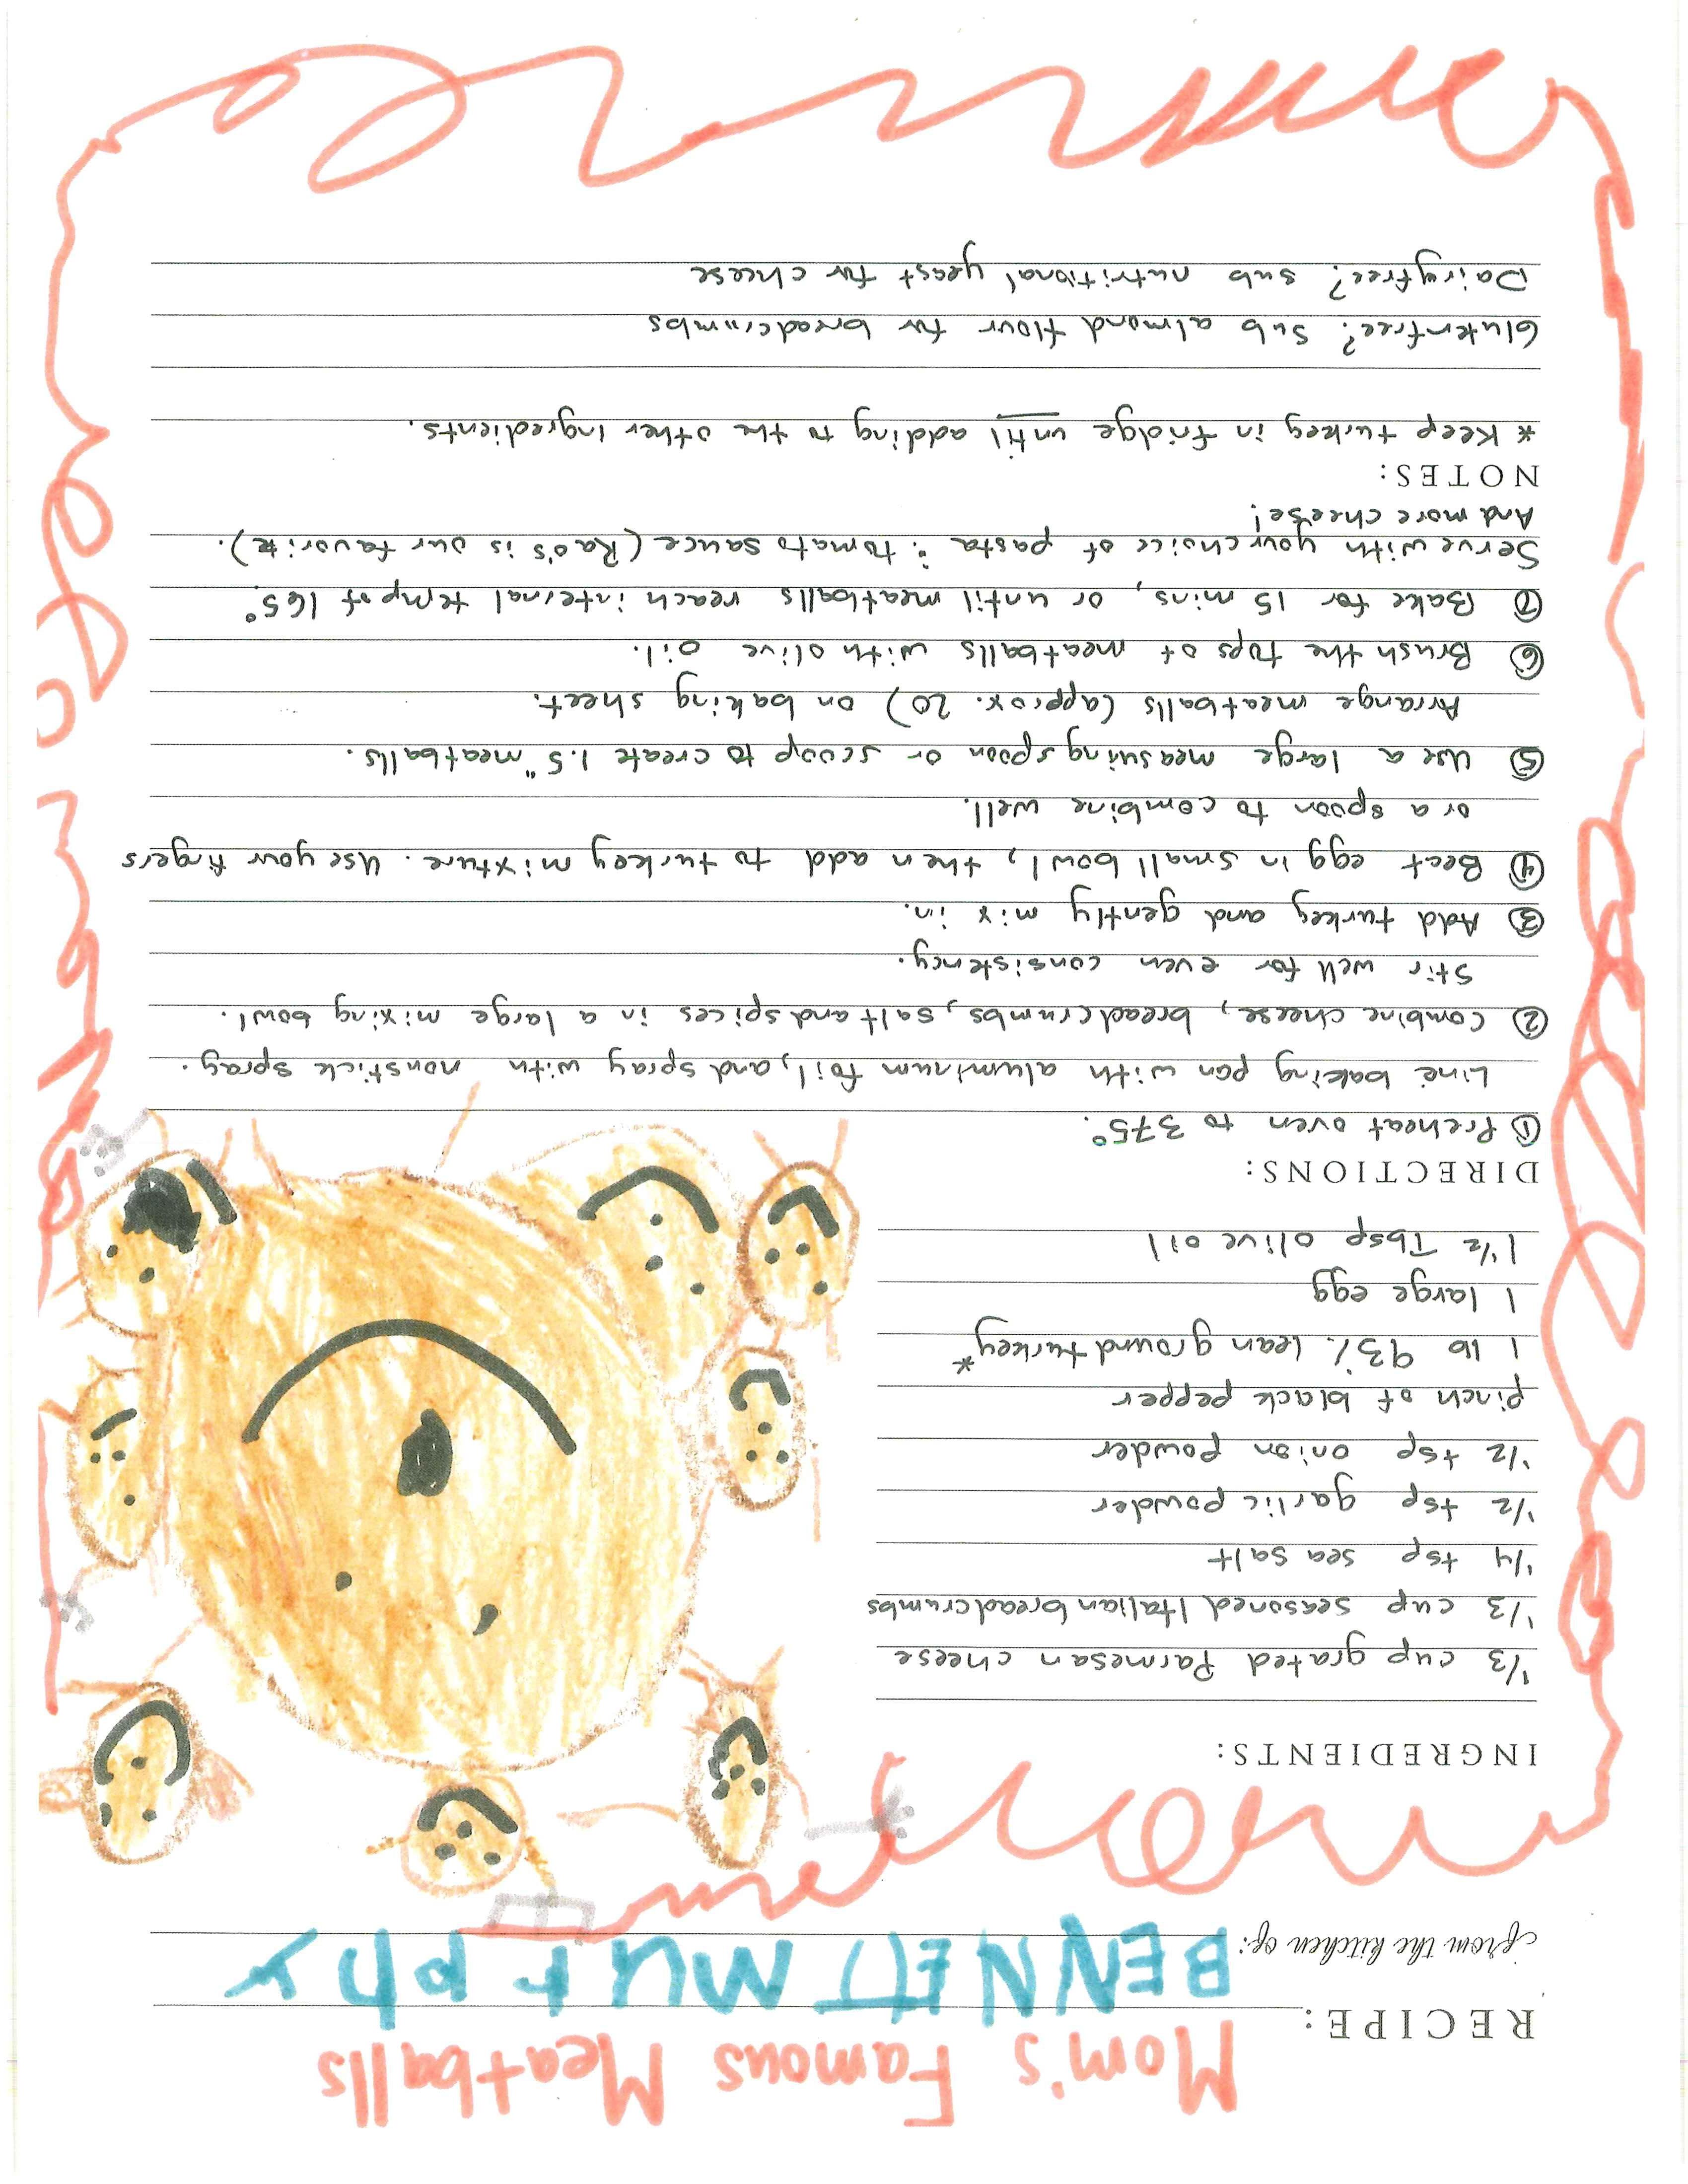 RECIPE: Mom's Famous Meatballs
from the kitchen of: BENNETT MURPHY
INGREDIENTS:
1/3 cup grated Parmesan cheese
1/3 cup seasoned Italian breadcrumbs
1/4 tsp sea salt
1/2 tsp garlic powder
1/2 tsp onion powder
pinch of black pepper
1 lb 93% lean ground turkey*
1 large egg
1 1/2 Tbsp olive oil
DIRECTIONS:
① Preheat oven to 375°.
Line baking pan with aluminum foil, and spray with nonstick spray.
② Combine cheese, breadcrumbs, salt and spices in a large mixing bowl.
Stir well for even consistency.
③ Add turkey and gently mix in.
④ Beat egg in small bowl, then add to turkey mixture. Use your fingers
or a spoon to combine well.
⑤ Use a large measuring spoon or scoop to create 1.5" meatballs.
Arrange meatballs (approx. 20) on baking sheet.
⑥ Brush the tops of meatballs with olive oil.
⑦ Bake for 15 mins, or until meatballs reach internal temp of 165°.
Serve with your choice of pasta & tomato sauce (Rao's is our favorite).
And more cheese!
NOTES:
* Keep turkey in fridge until adding to the other ingredients.
Glutenfree? Sub almond flour for breadcrumbs
Dairyfree? Sub nutritional yeast for cheese